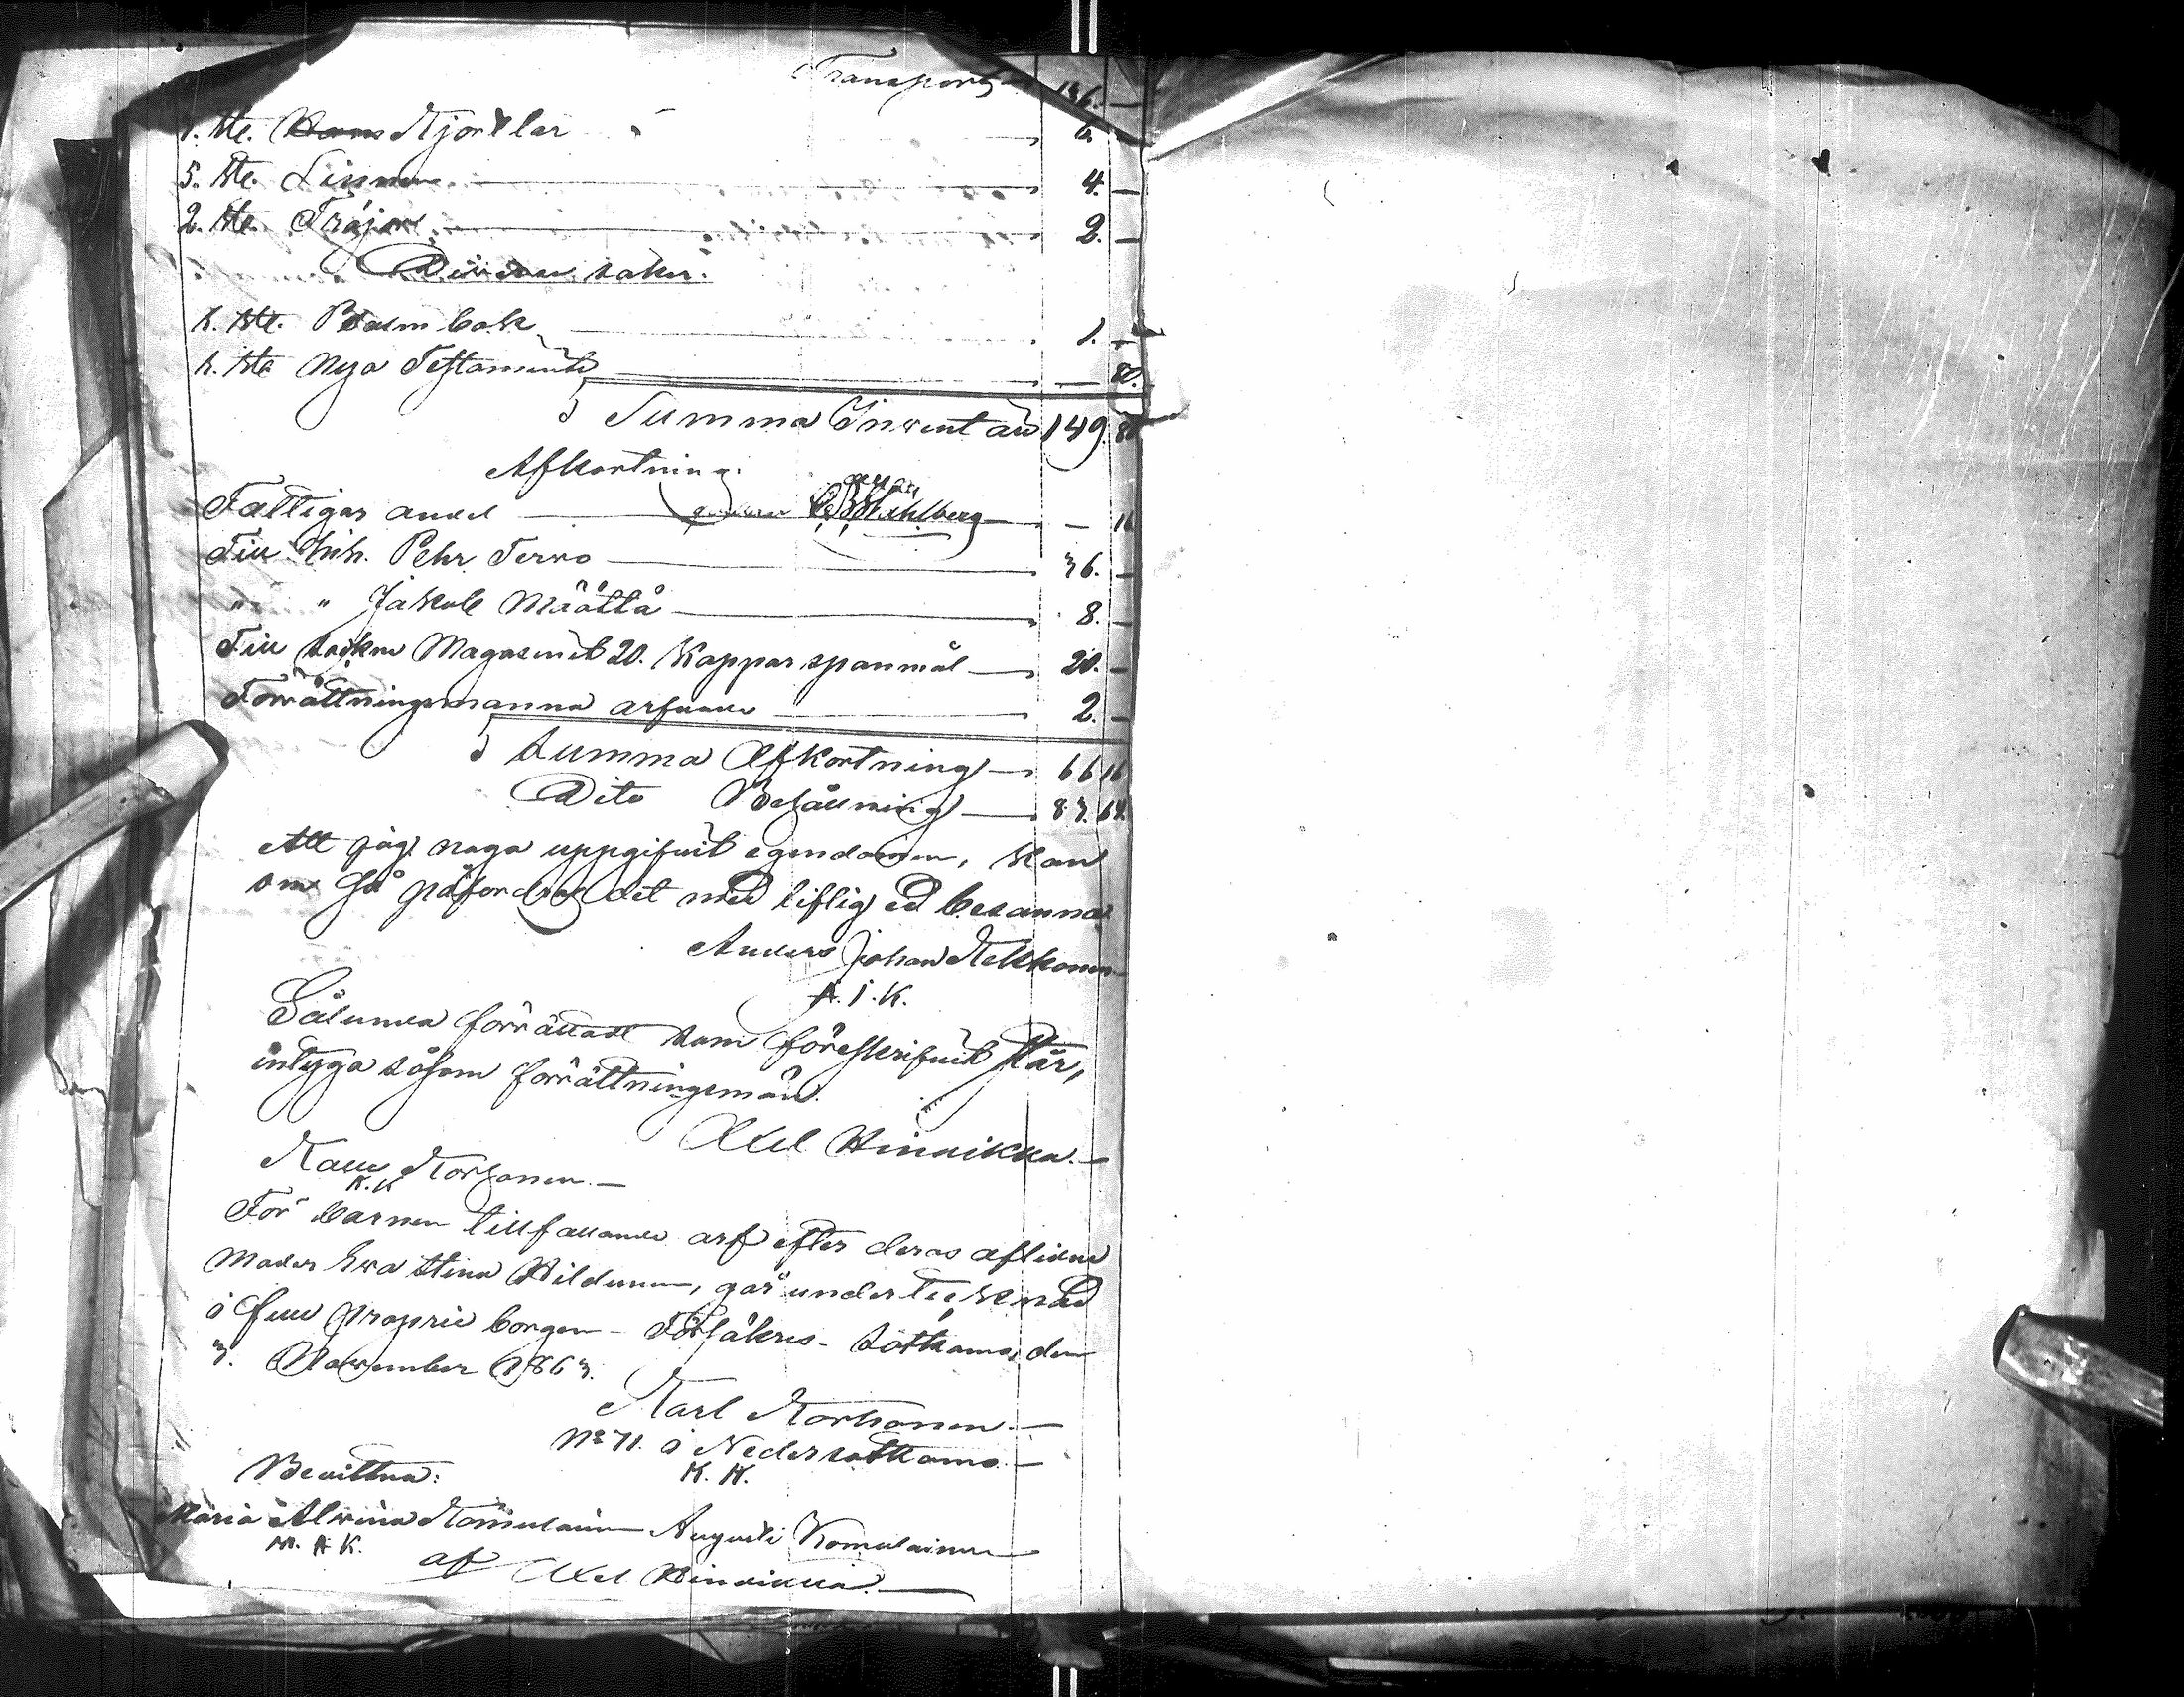 Transport 136. —
1. ste. Kjortlar — 6.
5. ste. Linnen — 4. —
2. ste. Tröjor — 2. —
Diverse saker.
1. ste. Psalmbok — 1. —
1. ste Nya Testamente — — 80.
Summa Inventarii 149. 80
Afkortning.
Fattigas andel — C. B. Ståhlberg — — 16
Till Inh. Pehr Tervo — 36. —
" " Jakob Määttä — 8. —
Till sockne Magasinet 20. Kappar spanmål — 20. —
Förrättningsmanna arfvode — 2. —
Summa Afkortning — 66 16
Dito Behållning — 83. 64.
Att jag noga uppgifvit egendomen, kan
om så påfordras det med liflig ed besanna
Anders Johan Kekkonen
A. J. K.
Sålunda förrättadt som föreskrifvit står,
intyga såsom förrättningsmän.
Axel Heinrikka. —
Kalle Korhonen. —
K. K
För barnen tillfallande arf efter deras aflidne
Moder Eva Stina Pildunen, går undertecknad
i full proprie borgen - Försäkres - Sotkamo, den
3. November 1863.
Karl Korhonen. —
No 71. i Nedersotkamo. —
K. K.
Bevittna:
Maria Alvina Komulainen Augusti Komulainen
M. A K.
af Axel Heinrikka. —